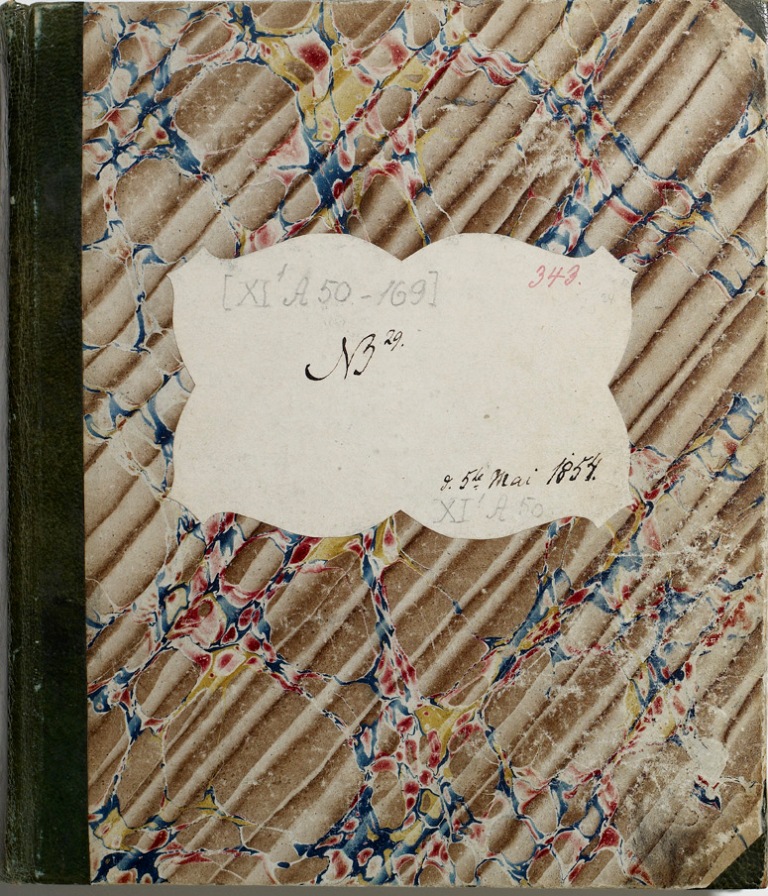 [XI¹ A 50-169] 343.
NB²⁹.
d. 5te Mai 1854.
XI¹ A 50